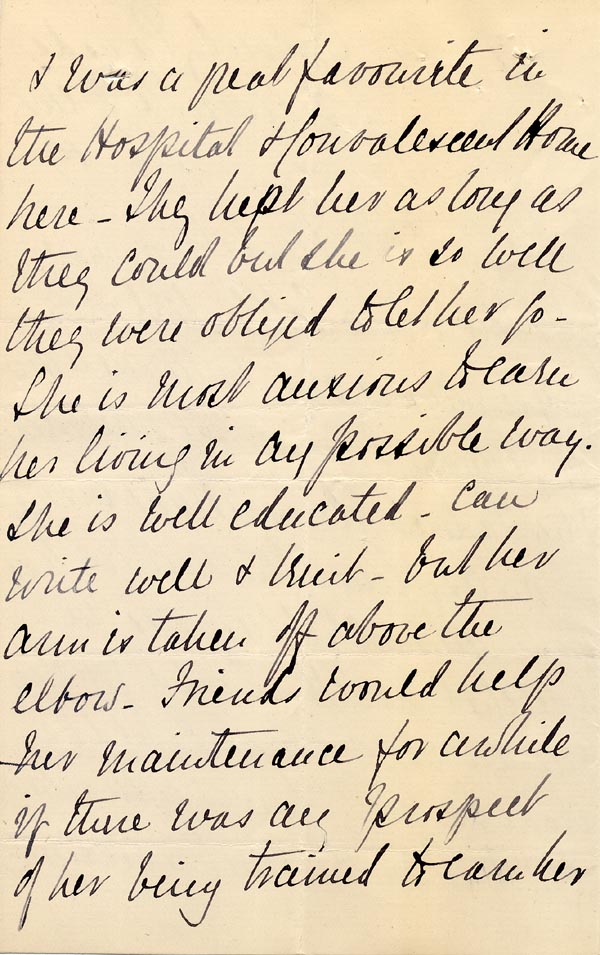 & was a great favourite in
the Hospital & Convalescent Home
here - They kept her as long as
they could but she is so well
they were obliged to let her go -
She is most anxious to earn
her living in any possible way.
She is well educated - can
write well & knit - but her
arm is taken off above the
elbow - Friends would help
her maintenance for awhile
if there was any prospect
of her being trained to earn her